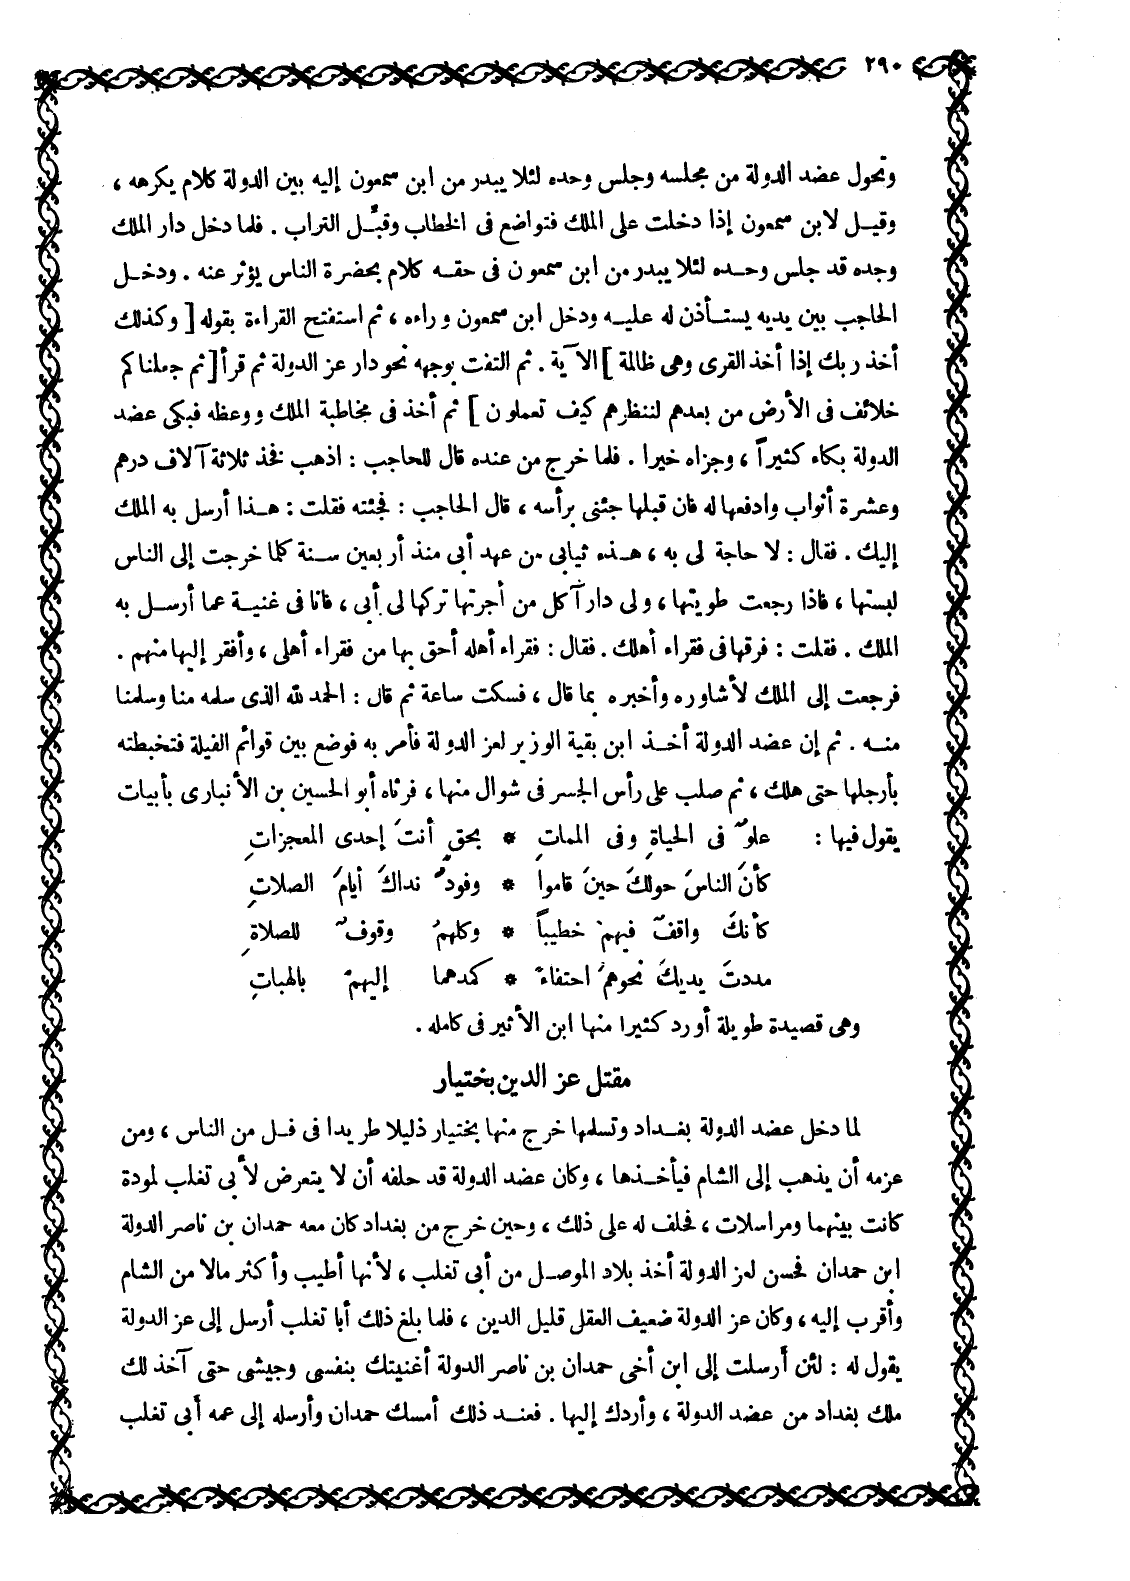 ٢٩٠
وتحول عضد الدولة من مجلسه وجلس وحده لئلا يبدر من ابن سمعون إليه بين الدولة كلام يكرهه ،
وقيل لابن سمعون إذا دخلت على الملك فتواضع فى الخطاب وقبِّل التراب . فلما دخل دار الملك
وجده قد جلس وحده لئلا يبدر من ابن سمعون فى حقه كلام بحضرة الناس يؤثر عنه . ودخل
الحاجب بين يديه يستأذن له عليه ودخل ابن سمعون وراءه ، ثم استفتح القراءة بقوله [ وكذلك
أخذ ربك إذا أخذ القرى وهى ظالمة ] الآية . ثم التفت بوجهه نحو دار عز الدولة ثم قرأ [ ثم جعلناكم
خلائف فى الأرض من بعدهم لننظرهم كيف تعملون ] ثم أخذ فى مخاطبة الملك ووعظه فبكى عضد
الدولة بكاء كثيراً ، وجزاه خيرا . فلما خرج من عنده قال للحاجب : اذهب فخذ ثلاثة آلاف درهم
وعشرة أثواب وادفعها له فان قبلها جئنى برأسه ، قال الحاجب : فجئته فقلت : هذا أرسل به الملك
إليك . فقال : لا حاجة لى به ، هذه ثيابى من عهد أبى منذ أربعين سنة كلما خرجت إلى الناس
لبستها ، فاذا رجعت طويتها ، ولى دار آكل من أجرتها تركها لى أبى ، فانا فى غنية عما أرسل به
الملك . فقلت : فرقها فى فقراء أهلك . فقال : فقراء أهله أحق بها من فقراء أهلى ، وأفقر إليها منهم .
فرجعت إلى الملك لأشاوره وأخبره بما قال ، فسكت ساعة ثم قال : الحمد لله الذى سلمه منا وسلمنا
منه . ثم إن عضد الدولة أخذ ابن بقية الوزير لعز الدولة فأمر به فوضع بين قوائم الفيلة فتخبطته
بأرجلها حتى هلك ، ثم صلب على رأس الجسر فى شوال منها ، فرثاه أبو الحسين بن الأنبارى بأبيات
يقول فيها : علوٌ فى الحياةِ وفى المماتِ * بحقٍ أنتَ إحدى المعجزاتِ
كأنَ الناسَ حولكَ حينَ قاموا * وفودُ نداكَ أيامَ الصلاتِ
كأنكَ واقفٌ فيهمْ خطيباً * وكلهمُ وقوفٌ للصلاةِ
مددتَ يديكَ نحوهمُ احتفاءً * كمدهما إليهمْ بالهباتِ
وهى قصيدة طويلة أورد كثيرا منها ابن الأثير فى كامله .
مقتل عز الدين بختيار
لما دخل عضد الدولة بغداد وتسلمها خرج منها بختيار ذليلا طريدا فى فل من الناس ، ومن
عزمه أن يذهب إلى الشام فيأخذها ، وكان عضد الدولة قد حلفه أن لا يتعرض لأبى تغلب لمودة
كانت بينهما ومراسلات ، فحلف له على ذلك ، وحين خرج من بغداد كان معه حمدان بن ناصر الدولة
ابن حمدان فحسن لعز الدولة أخذ بلاد الموصل من أبى تغلب ، لأنها أطيب وأكثر مالا من الشام
وأقرب إليه ، وكان عز الدولة ضعيف العقل قليل الدين ، فلما بلغ ذلك أبا تغلب أرسل إلى عز الدولة
يقول له : لئن أرسلت إلى ابن أخى حمدان بن ناصر الدولة أغنيتك بنفسى وجيشى حتى آخذ لك
ملك بغداد من عضد الدولة ، وأردك إليها . فعند ذلك أمسك حمدان وأرسله إلى عمه أبى تغلب